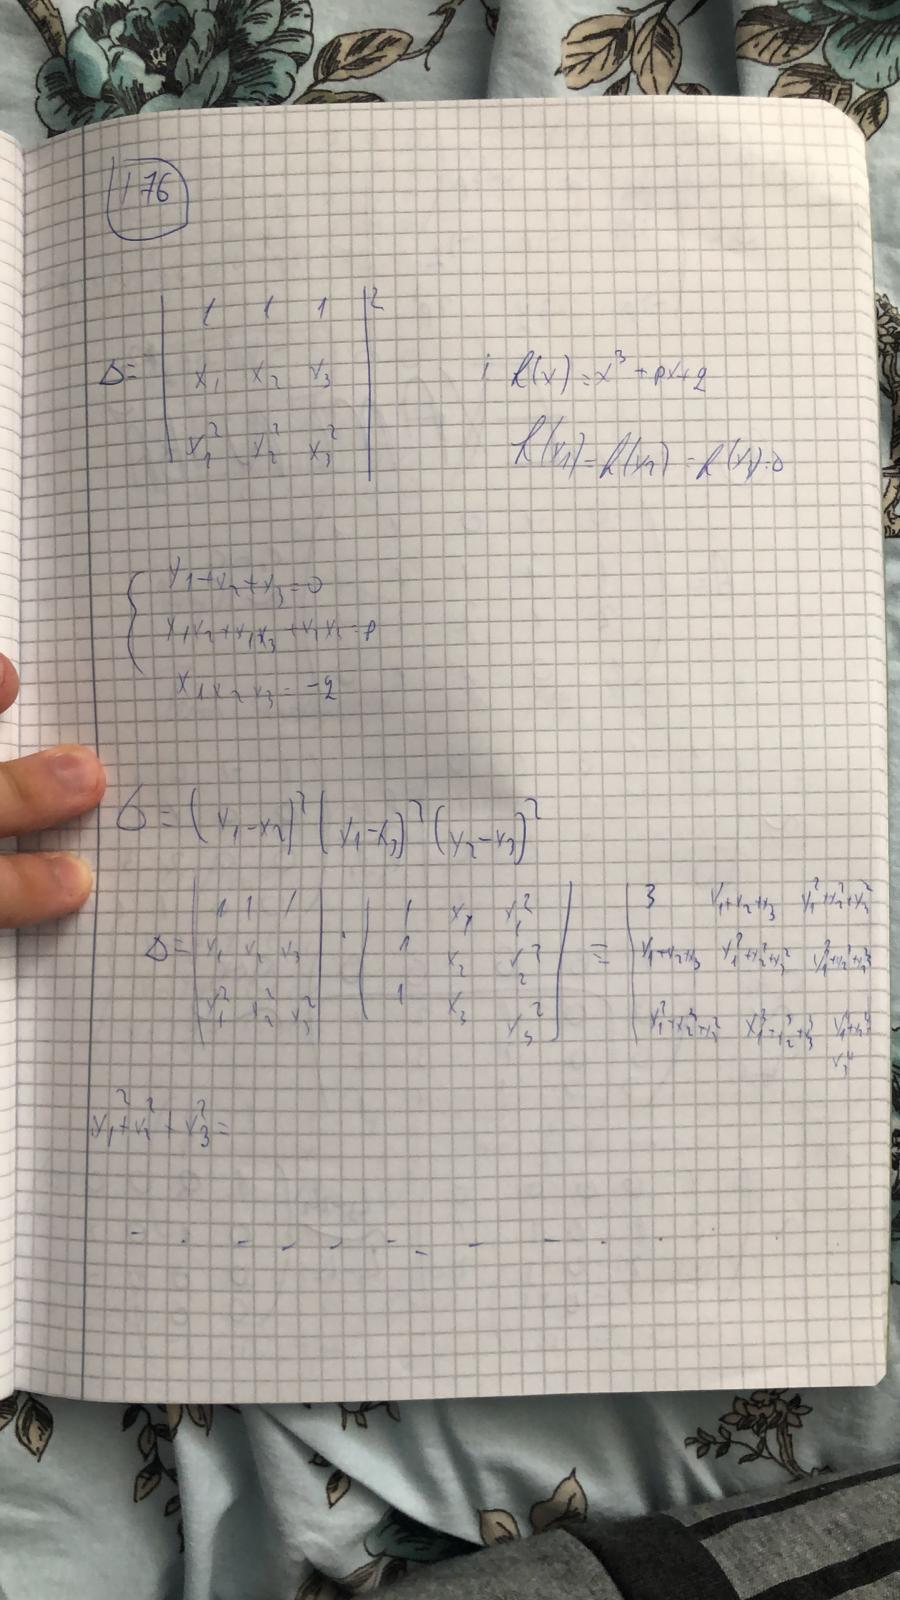 176
Δ = | 1 1 1 |²
| x₁ x₂ x₃ |
| x₁² x₂² x₃² |
; h(x) = x³ + px + q
h(x₁) = h(x₂) = h(x₃) = 0
{ x₁ + x₂ + x₃ = 0
x₁x₂ + x₁x₃ + x₂x₃ = p
x₁x₂x₃ = -q
Δ = (x₁ - x₂)² (x₁ - x₃)² (x₂ - x₃)²
Δ = | 1 1 1 | · | 1 x₁ x₁² | = | 3 x₁+x₂+x₃ x₁²+x₂²+x₃² |
| x₁ x₂ x₃ | | 1 x₂ x₂² | | x₁+x₂+x₃ x₁²+x₂²+x₃² x₁³+x₂³+x₃³ |
| x₁² x₂² x₃² | | 1 x₃ x₃² | | x₁²+x₂²+x₃² x₁³+x₂³+x₃³ x₁⁴+x₂⁴+x₃⁴ |
x₁² + x₂² + x₃² =